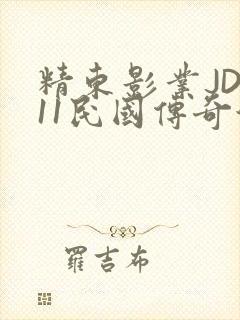 精東影業JD
11民國傳奇
羅吉布